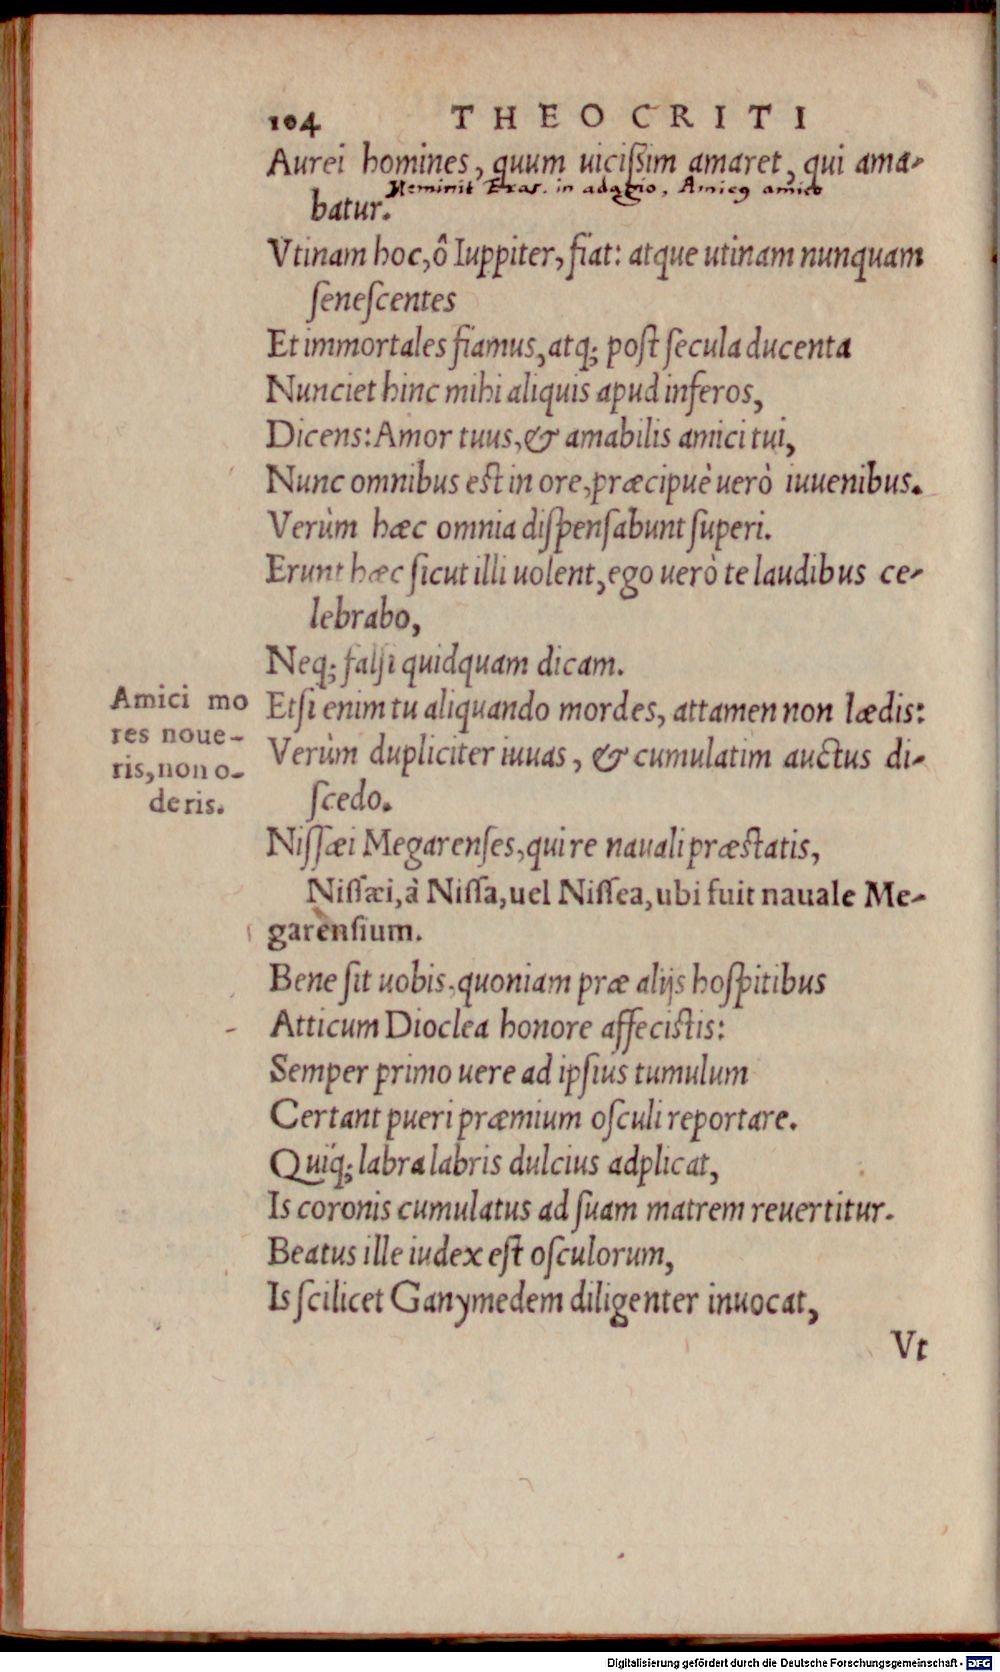 104 THEOCRITI
Aurei homines, quum uicißim amaret, qui ama-
Meminit Eras. in adagio, Amicꝰ amico
batur.
Vtinam hoc, ô Iuppiter, fiat: atque utinam nunquam
ſeneſcentes
Et immortales fiamus, atq; poſt ſecula ducenta
Nunciet hinc mihi aliquis apud inferos,
Dicens: Amor tuus, & amabilis amici tui,
Nunc omnibus eſt in ore, præcipuè uerò iuuenibus.
Verùm hæc omnia diſpenſabunt ſuperi.
Erunt hæc ſicut illi uolent, ego uerò te laudibus ce-
lebrabo,
Neq; falſi quidquam dicam.
Amici mo
res noue-
ris, non o-
deris.
Etſi enim tu aliquando mordes, attamen non lædis:
Verùm dupliciter iuuas, & cumulatim auctus di-
ſcedo.
Niſſæi Megarenſes, qui re nauali præſtatis,
Niſſæi, à Niſſa, uel Niſſea, ubi fuit nauale Me-
garenſium.
Bene ſit uobis, quoniam præ alijs hoſpitibus
Atticum Dioclea honore affeciſtis:
Semper primo uere ad ipſius tumulum
Certant pueri præmium oſculi reportare.
Quiq́; labra labris dulcius adplicat,
Is coronis cumulatus ad ſuam matrem reuertitur.
Beatus ille iudex eſt oſculorum,
Is ſcilicet Ganymedem diligenter inuocat,
Vt
Digitalisierung gefördert durch die Deutsche Forschungsgemeinschaft - DFG